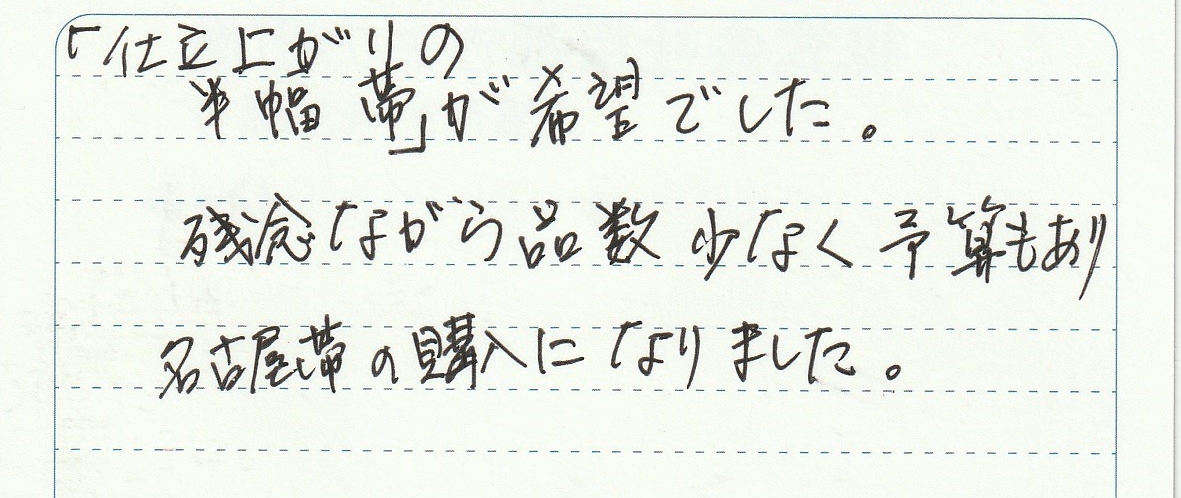 「仕立上がりの
半幅帯」が希望でした。
残念ながら品数少なく予算もあり
名古屋帯の購入になりました。